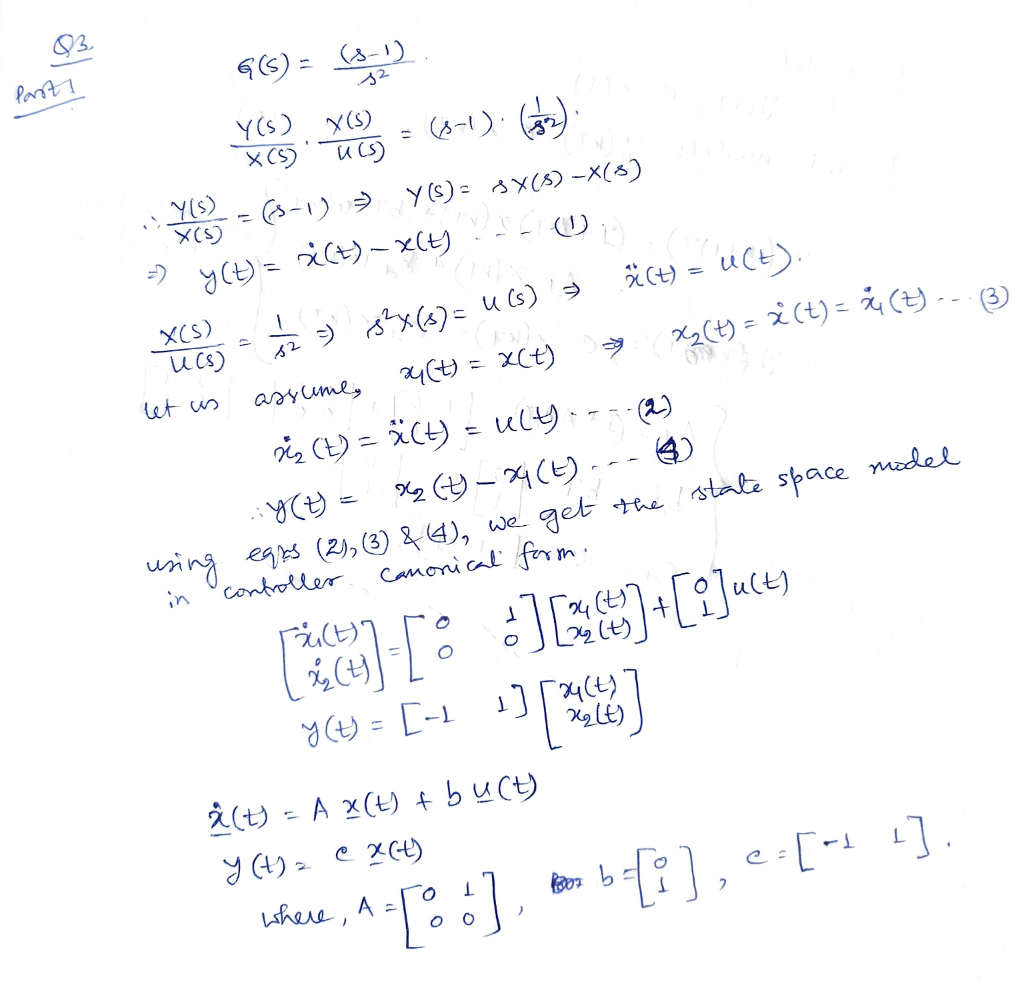 Q3.
Part 1
G(s) = (s-1) / s²
Y(s)/X(s) · X(s)/U(s) = (s-1) · (1/s²).
∴ Y(s)/X(s) = (s-1) ⇒ Y(s) = sX(s) - X(s)
⇒ y(t) = ẋ(t) - x(t) --- (1)
X(s)/U(s) = 1/s² ⇒ s²X(s) = U(s) ⇒ ẍ(t) = u(t).
let us assume, x₁(t) = x(t) ⇒ x₂(t) = ẋ(t) = ẋ₁(t) --- (3)
ẋ₂(t) = ẍ(t) = u(t) ---- (2)
∴ y(t) = x₂(t) - x₁(t) --- (4)
using eqns (2), (3) & (4), we get the state space model
in controller canonical form.
[ẋ₁(t) ; ẋ₂(t)] = [0 1 ; 0 0] [x₁(t) ; x₂(t)] + [0 ; 1] u(t)
y(t) = [-1 1] [x₁(t) ; x₂(t)]
ẋ(t) = A x(t) + b u(t)
y(t) = c x(t)
where, A = [0 1 ; 0 0], b = [0 ; 1], c = [-1 1].